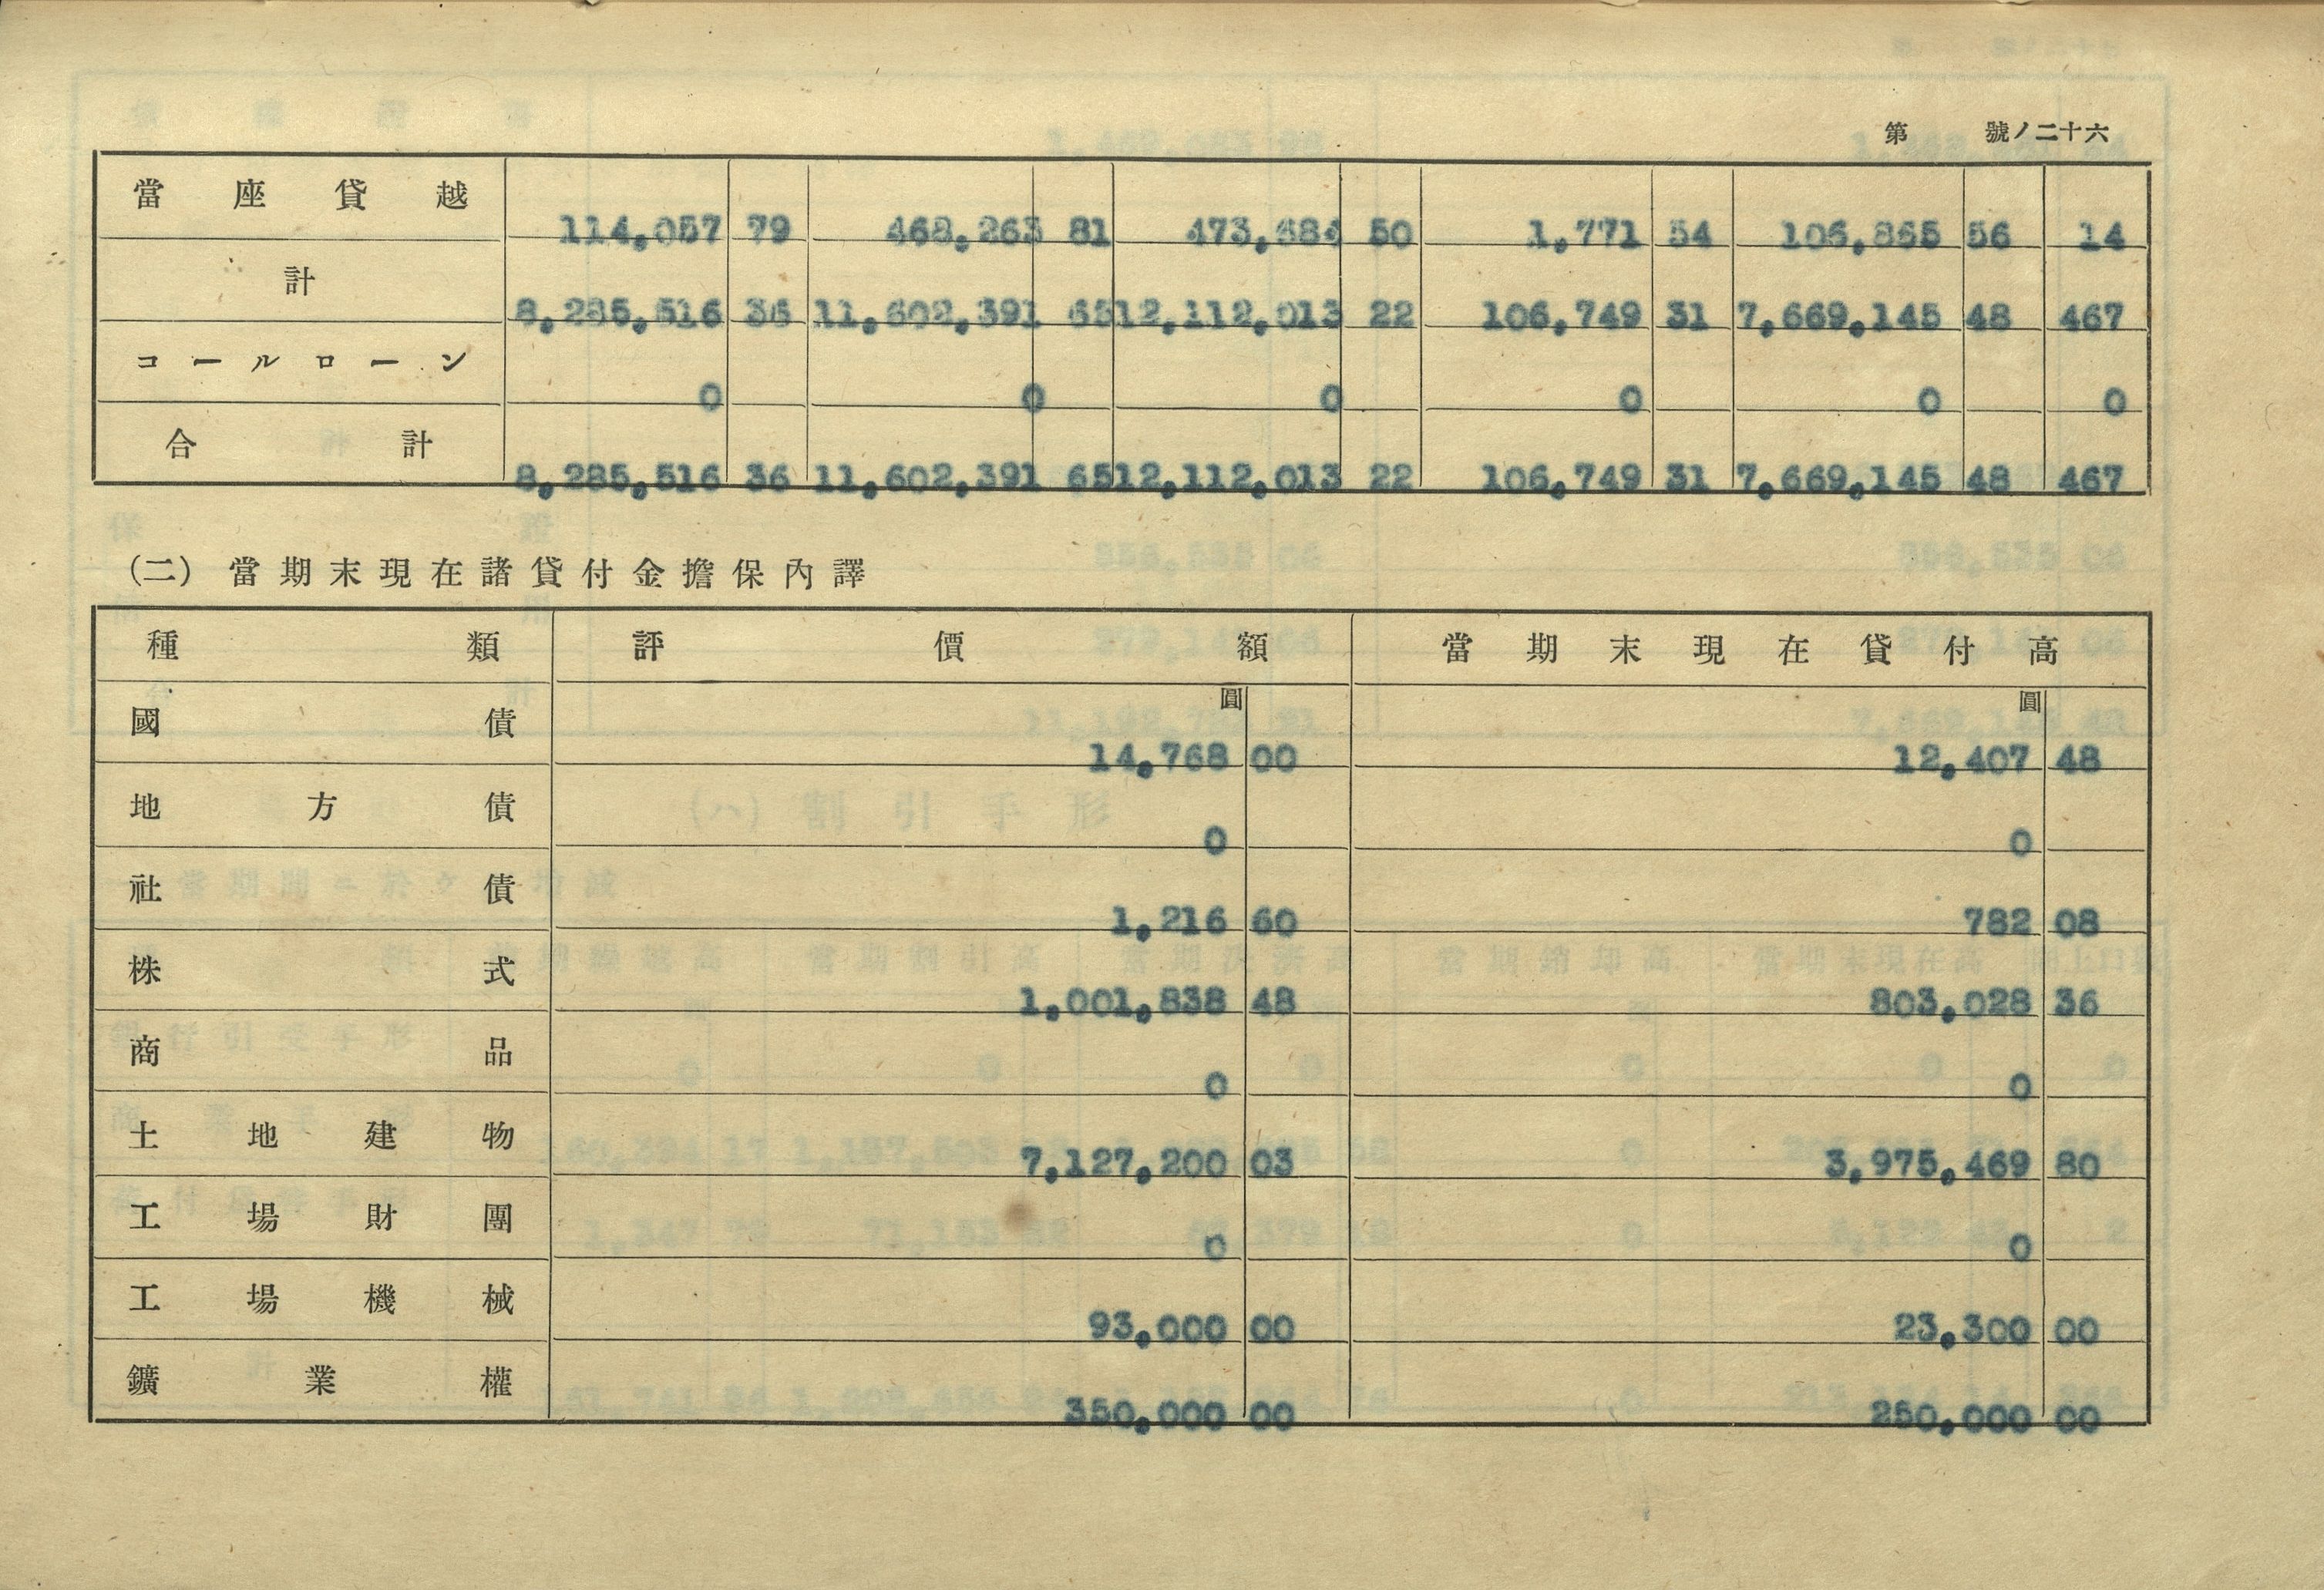 第 號ノ二十六
當座貸越 114,057 79 468,263 81 473,684 50 1,771 54 106,865 56 14
計 8,285,516 36 11,602,391 65 12,112,013 22 106,749 31 7,669,145 48 467
コールローン 0 0 0 0 0 0
合計 8,285,516 36 11,602,391 65 12,112,013 22 106,749 31 7,669,145 48 467
(二) 當期末現在諸貸付金擔保內譯
種類 評價額 當期末現在貸付高
圓 圓
國債 14,768 00 12,407 48
地方債 0 0
社債 1,216 60 782 08
株式 1,001,838 48 803,028 36
商品 0 0
土地建物 7,127,200 03 3,975,469 80
工場財團 0 0
工場機械 93,000 00 23,300 00
鑛業權 350,000 00 250,000 00